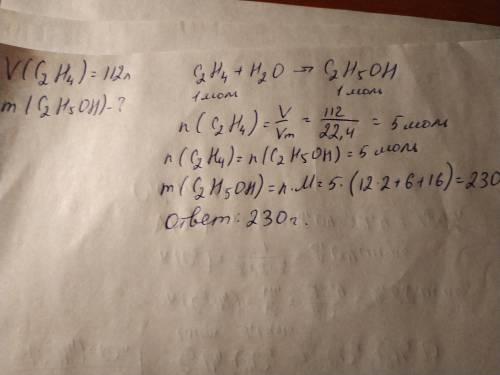 V(C₂H₄) = 112л
m(C₂H₅OH) - ?
C₂H₄ + H₂O → C₂H₅OH
1 моль 1 моль
n(C₂H₄) = V/Vm = 112/22,4 = 5 моль
n(C₂H₄) = n(C₂H₅OH) = 5 моль
m(C₂H₅OH) = n·M = 5·(12·2+6+16) = 230
Ответ: 230г.